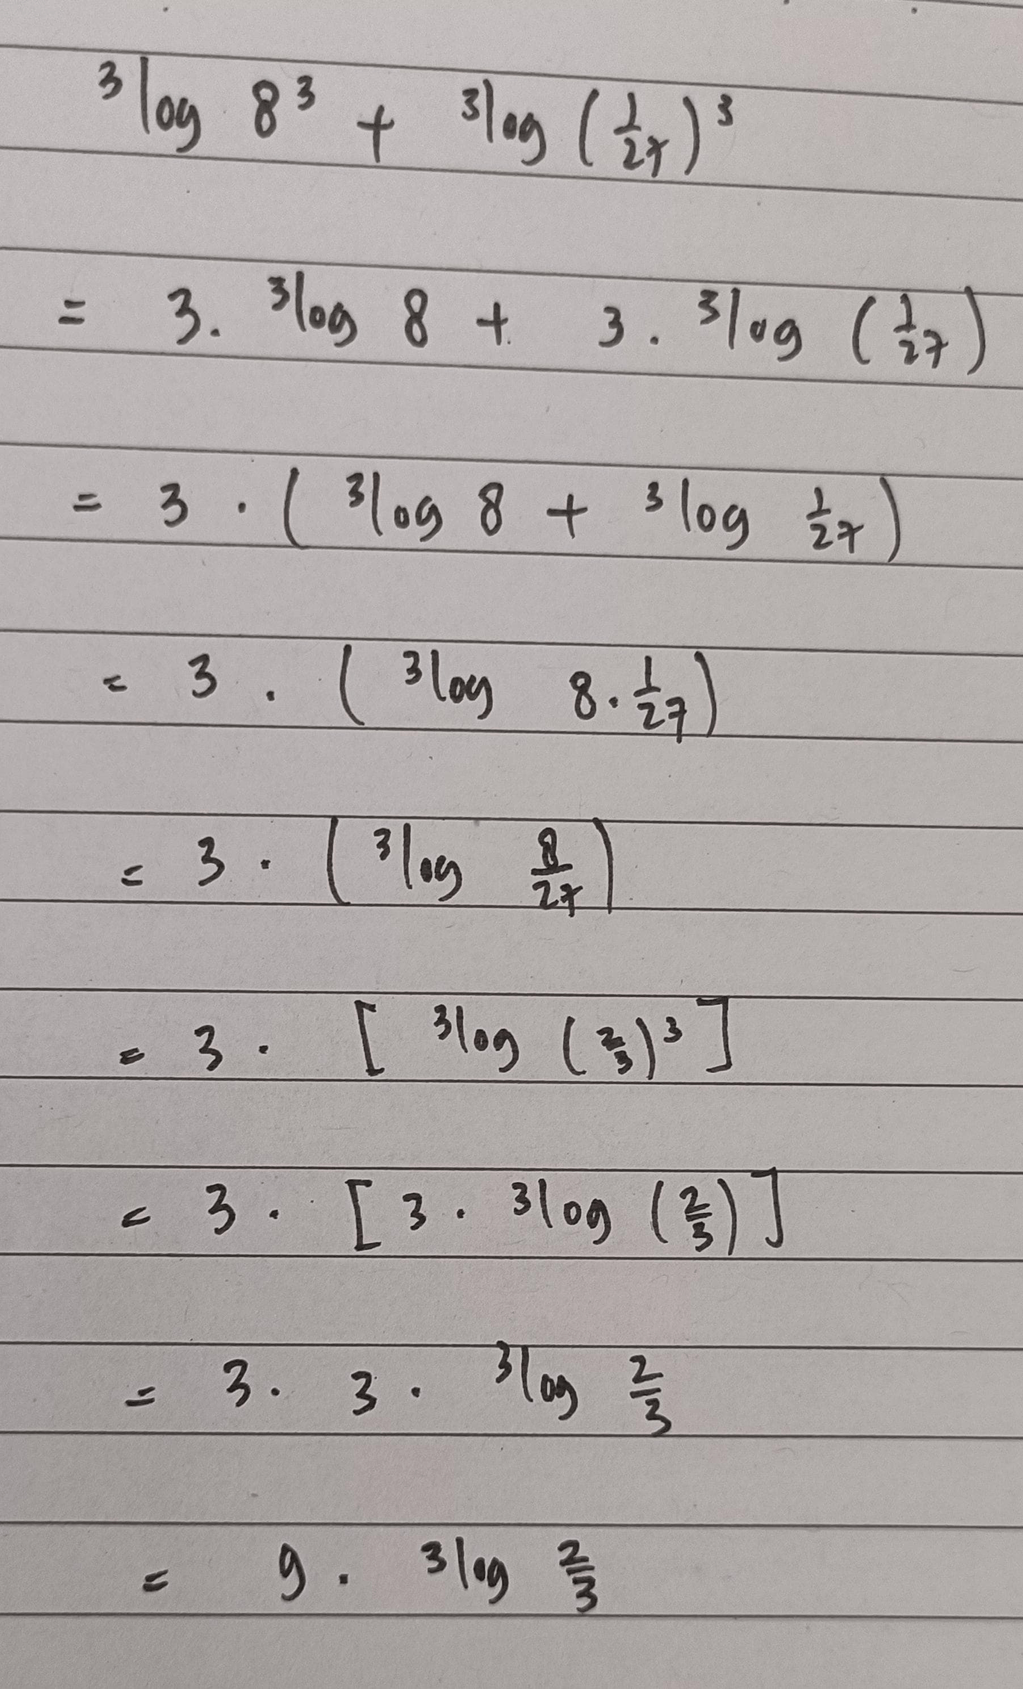 ³log 8³ + ³log (1/27)³
= 3. ³log 8 + 3. ³log (1/27)
= 3 . ( ³log 8 + ³log 1/27)
= 3 . ( ³log 8. 1/27)
= 3 . ( ³log 8/27)
= 3 . [ ³log (2/3)³ ]
= 3 . [ 3 . ³log (2/3) ]
= 3 . 3 . ³log 2/3
= 9 . ³log 2/3